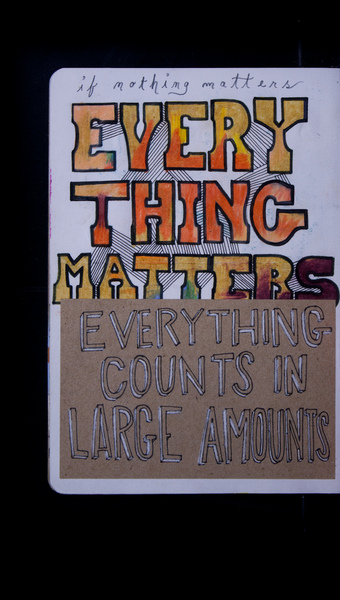 if nothing matters
EVERY
THING
MATTERS
EVERYTHING
COUNTS IN
LARGE AMOUNTS